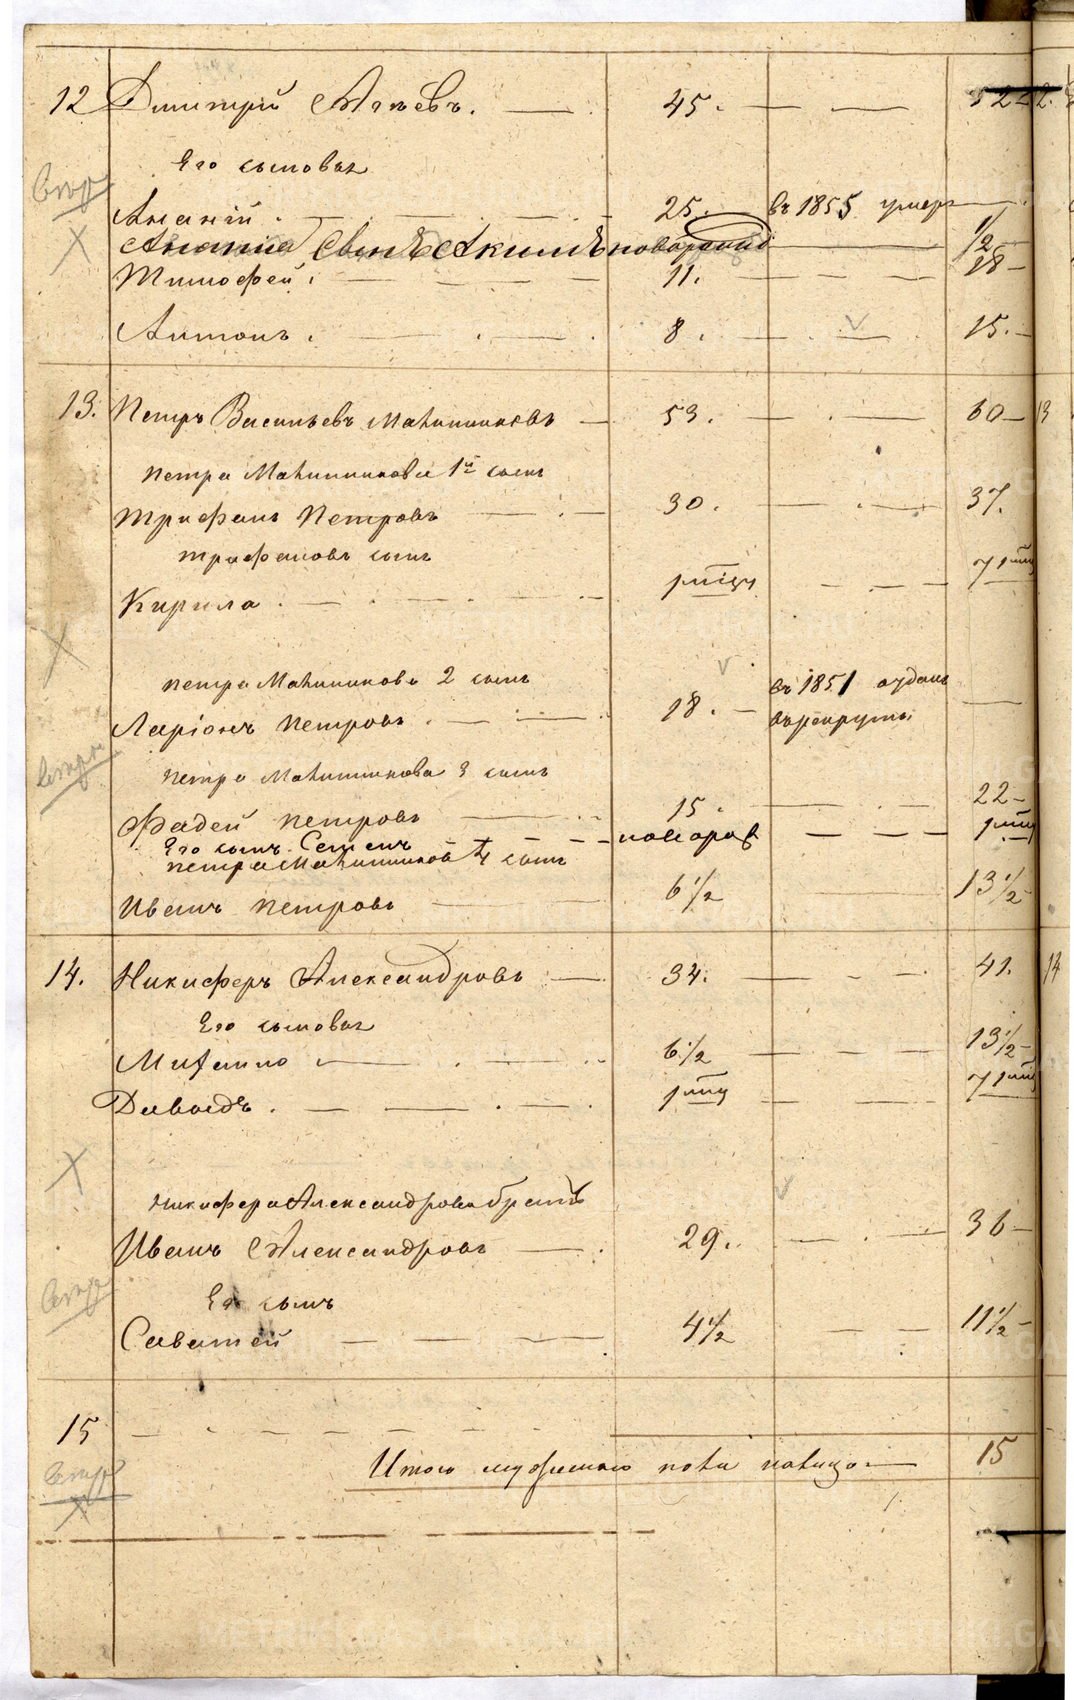 12 Дмитрій Агѣевъ. 45. 52
Его сыновья
Ананій. 25. въ 1855 умеръ
Ананія сынъ Акимъ новорожд 1/2
Тимофей. 11. 18
Антонъ. 8. 15.
13. Петръ Васильевъ 53. 60
Петра 1й сынъ
Трифанъ Петровъ 30. 37.
Трифановъ сынъ
Кирила. 7
Петра 2 сынъ
Ларіонъ Петровъ. 18. въ 1851 отданъ
въ рекруты
Петра 3 сынъ
Фадей Петровъ 15. 22
Его сынъ Семенъ новорож
Петра 4 сынъ
Иванъ Петровъ 6 1/2 13 1/2
14. Никиферъ Александровъ 34. 41.
Его сыновья
Михаило 6 1/2 13 1/2
Давыдъ.
Никифера Александрова братъ
Иванъ Александровъ 29. 36
Его сынъ
Саватей 4 1/2 11 1/2
15
Итого мужескаго пола налицо 15